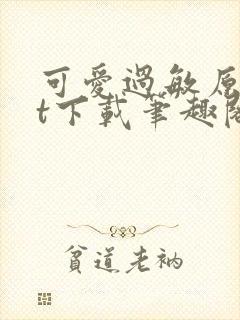 可愛過敏原
t下載筆趣閣
貧道老衲